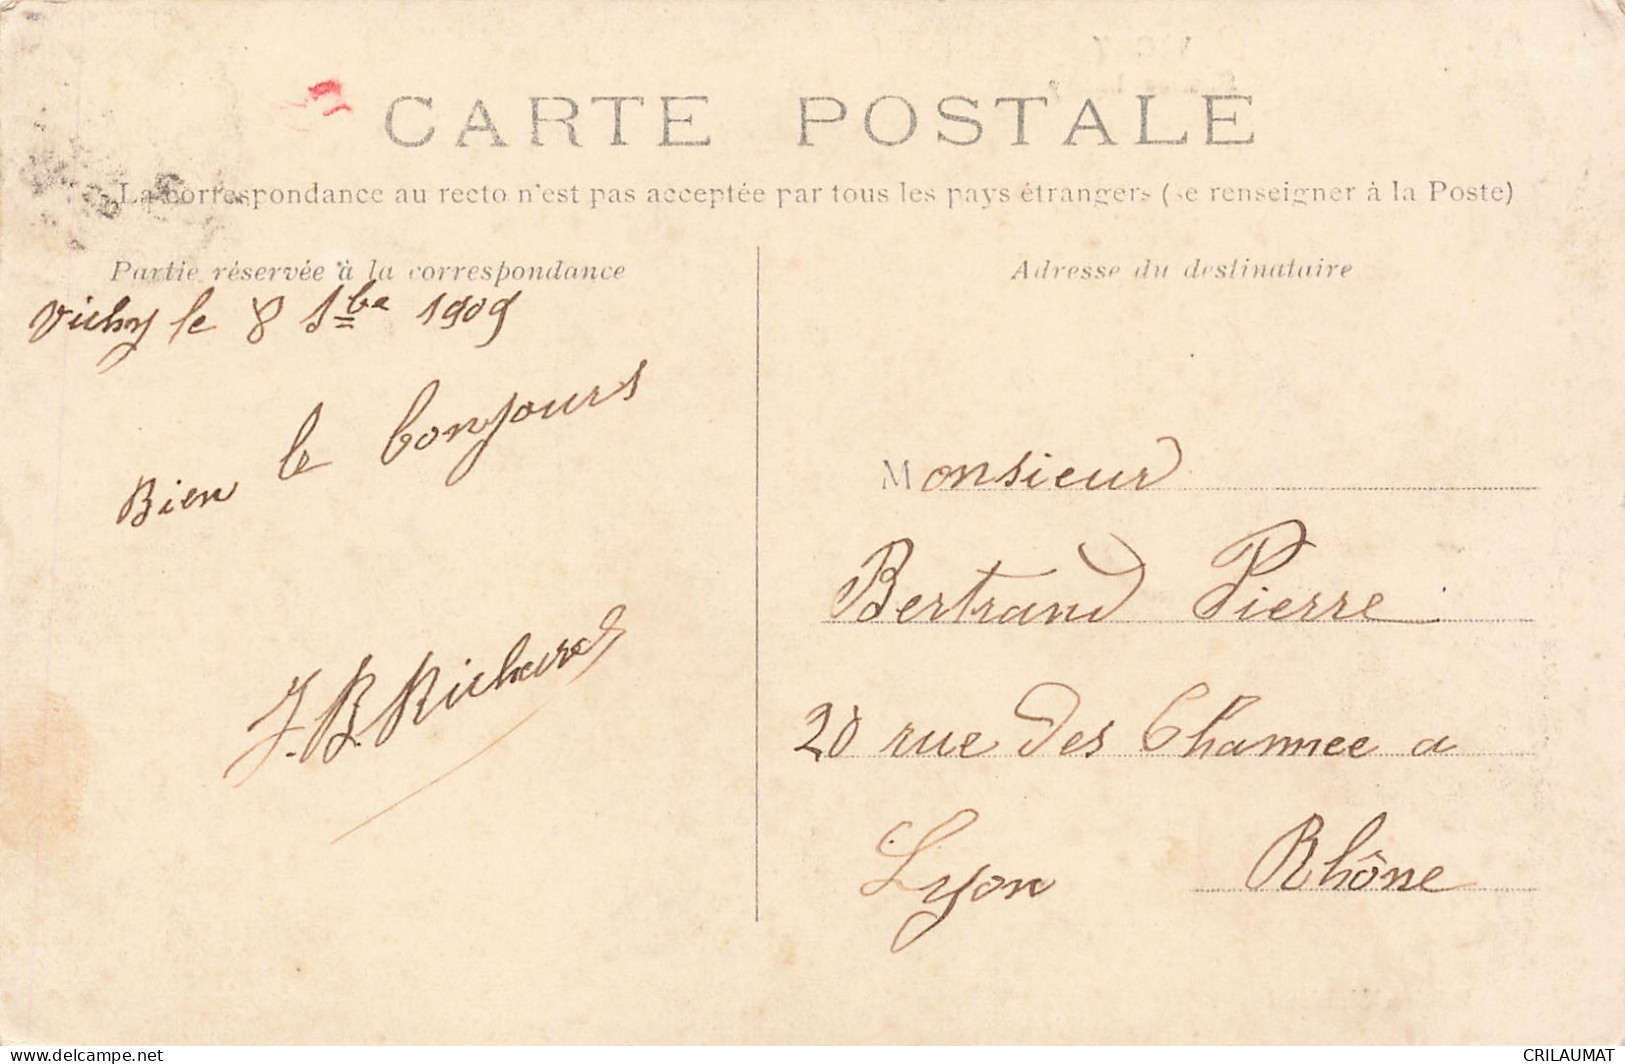 CARTE POSTALE
La correspondance au recto n'est pas acceptée par tous les pays étrangers (se renseigner à la Poste)
Partie réservée à la correspondance
Vichy le 8 Sbe 1909
Bien le bonjours
J. B. Richard
Adresse du destinataire
Monsieur
Bertrand Pierre
20 rue des a
Lyon Rhône
delcampe.net
CRILAUMAT